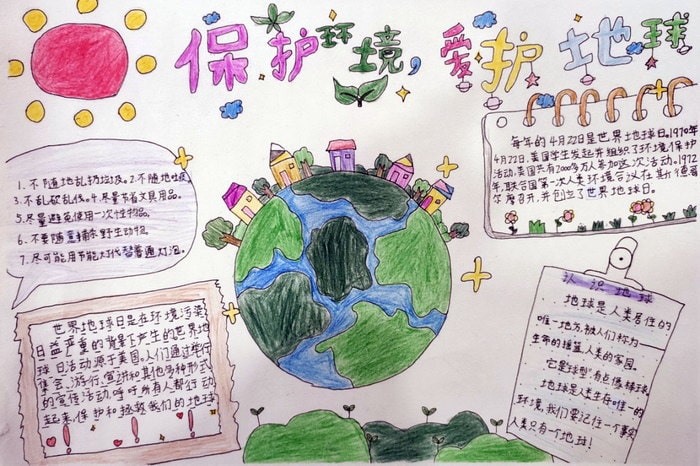 保护环境,爱护地球
1.不随地乱扔垃圾。2.不随地吐痰。
3.不乱砍乱伐。4.尽量节省文具用品。
5.尽量避免使用一次性物品。
6.不要随意捕杀野生动物
7.尽可能用节能灯代替普通灯泡。
每年的4月22日是世界地球日。1970年
4月22日,美国学生发起并组织了环境保护
活动,美国共有2000多万人参加这次活动。1972
年,联合国第一次人类环境会议在斯德哥
尔摩召开,并创立了世界地球日。
世界地球日是在环境污染
日益严重的背景下产生的世界地
球日活动源于美国。人们通过举行
集会、游行、宣讲和其他多种形式
的宣传活动,呼吁所有人都行动
起来,保护和拯救我们的地球
认识地球
地球是人类居住的
唯一地方,被人们称为
生命的摇篮人类的家园。
它是球型,有点像棒球。
地球是人类生存唯一的
环境,我们要记住一个事实
人类只有一个地球!